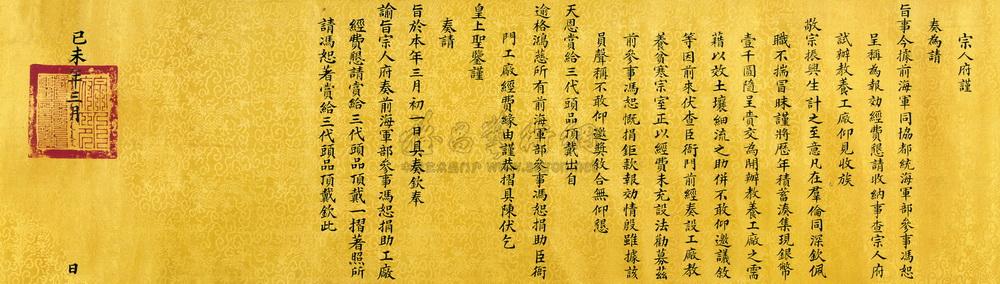 宗人府謹
奏為請
旨事今據前海軍同協都統海軍部參事馮恕
呈稱為報効經費懇請收納事查宗人府
試辦教養工廠仰見收族
敬宗振興生計之至意凡在羣倫同深欽佩
職不揣冒昧謹將歷年積蓄湊集現銀幣
壹千圓隨呈貴交為開辦教養工廠之需
藉以效土壤細流之助併不敢仰邀議敘
等因前來伏查臣衙門前經奏設工廠教
養貧寒宗室正以經費未充設法勸募茲
前參事馮恕慨捐鉅款報効情殷雖據該
員聲稱不敢仰邀獎敘合無仰懇
天恩賞給三代頭品頂戴出自
逾格鴻慈所有前海軍部參事馮恕捐助臣衙
門工廠經費緣由謹恭摺具陳伏乞
皇上聖鑒謹
奏請
旨於本年三月初一日具奏欽奉
諭旨宗人府奏前海軍部參事馮恕捐助工廠
經費懇請賞給三代頭品頂戴一摺著照所
請馮恕著賞給三代頭品頂戴欽此
己未年三月
日